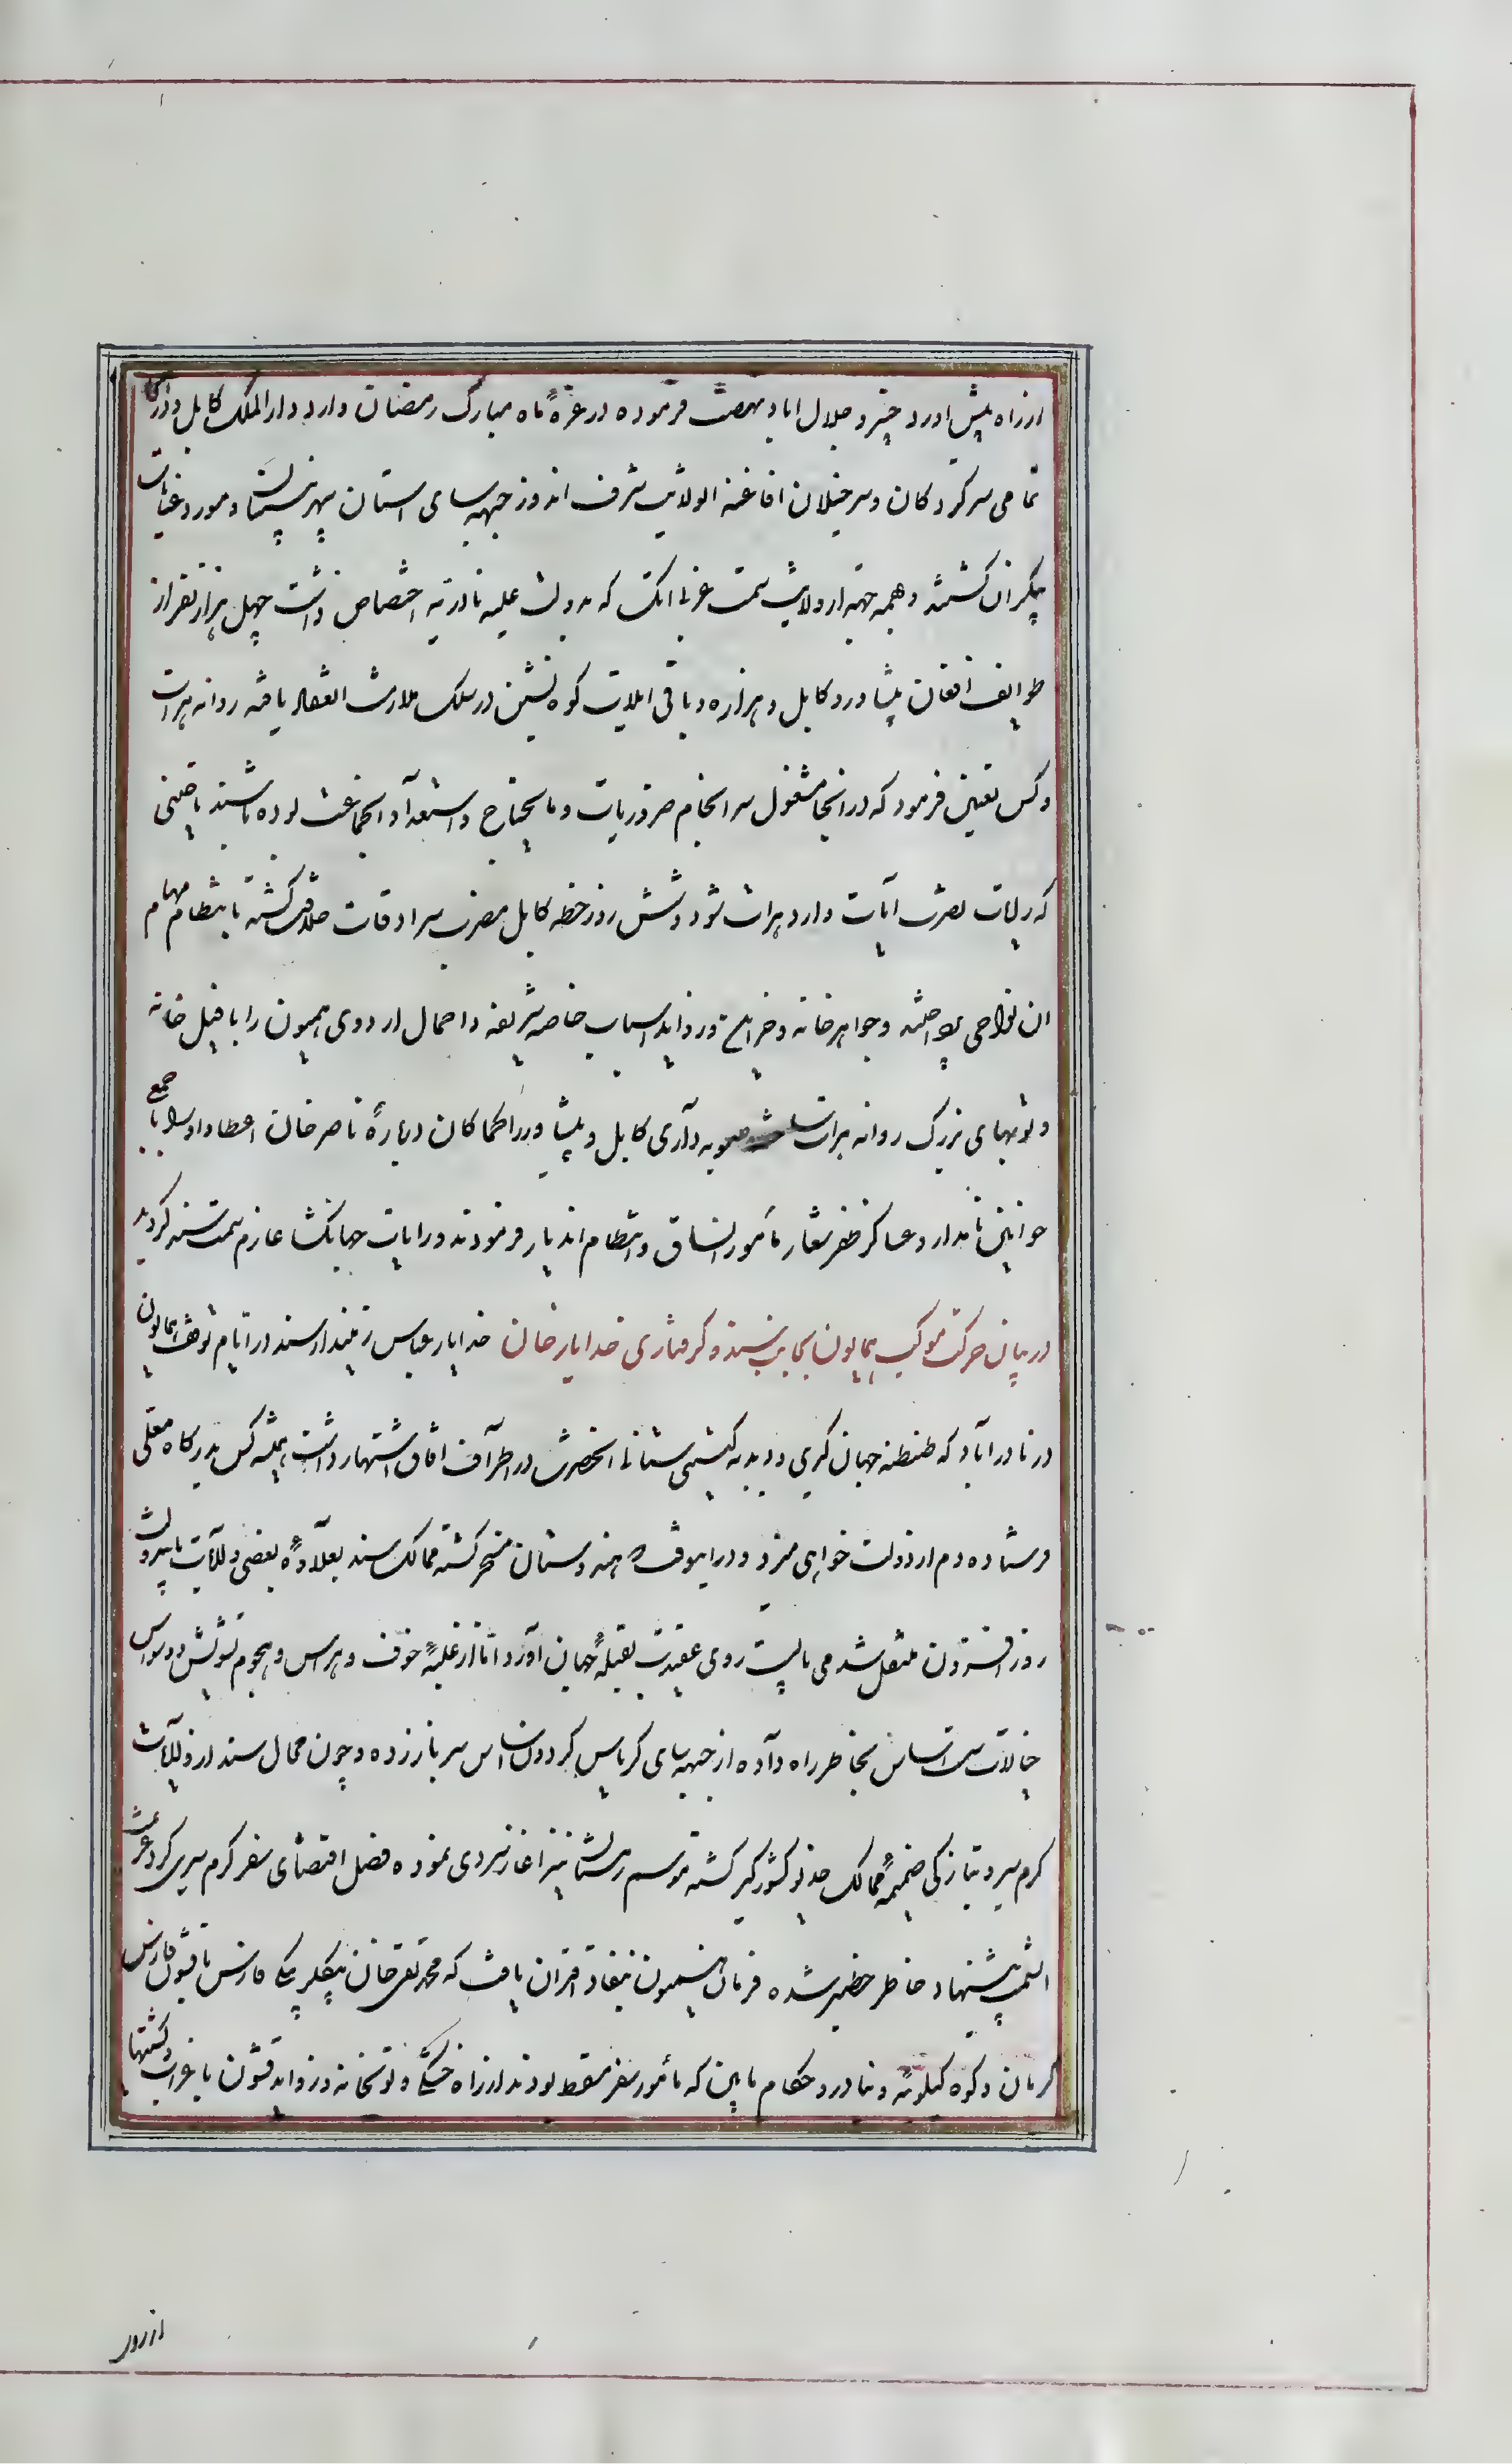 از راه پیشاور و خیبر و جلال اباد نهضت فرموده در غرهٔ ماه مبارک رمضان وارد دارالملک کابل و در آنجا
تمامی سرکردکان و سرخیلان افاغنه الولایت شرف اندوز جبهه سای استان سپهر بنیان و مورد عنایات
بیکران کشتند و همه جهة از ولایت سمت غربی اتک که بدولت علیه نادریه اختصاص داشت چهل هزار نفر از
طوایف افغان پیشاور و کابل و هزاره و باقی ایلات کوه نشین در سلک ملازمت انعقاد یافته روانه هرات
و کس تعیین فرمود که در انجا مشغول سرانجام ضروریات و مایحتاج و استعداد انجماعت بوده باشند تا حینی
که رایات نصرت آیات وارد هرات شود و شش روز خطه کابل مضرب سرادقات جلالت کشته بانتظام مهام
ان نواحی پرداخته و جواهرخانه و خزاین و زواید اسباب خاصه شریفه و احمال اردوی همیون را با فیل خانه
و توبهای بزرک روانه هرات ساخته صوبه داری کابل و پیشاور را کماکان دربارهٔ ناصر خان اعطا و او را با جمع
خوانین نامدار و عساکر ظفر شعار مامور انساق و انتظام اندیار فرمودند و رایات جهانکشا عازم سمت سند کردید
در بیان حرکت موکب همایون بجانب سند و کرفتاری خدایار خان خدایار عباسی زمیندار سند در ایام توقف همایون
در نادراباد که طنطنه جهان کیری و دبدبه کیتی ستانی انحضرت در اطراف افاق اشتهار داشت پیشکش بدرکاه معلی
فرستاده دم از دولت خواهی میزد و در اینوقت که هندوستان مسخر کشته ممالک سند بعلاوهٔ بعضی ولایات بدولت
روز افزون منتقل شد می بایست روی عقیدت بقبلهٔ جهان اورد اما از غلبهٔ خوف و هراس و هجوم تشویش و وسواس
خیالات سست اساس بخاطر راه داده از جبهه سای کریاس کردون اساس سر باز زده و چون محال سند از ولایات
کرم سیر و بتازکی ضمیمهٔ ممالک خدیو کشورکیر کشته موسم زمستان نیز اغاز سردی نموده فصل اقتضای سفر کرم سیری کرد عزیمت
السمت پیشنهاد خاطر خطیر شده فرمان همیون بنفاذ اقتران یافت که محمد تقی خان بیکلر بیکی فارس با قشون فارس
کرمان و کوه کیلویه و بنادر و حکام مابین که مامور سفر مسقط بودند از راه خشکی و توبخانه و زواید قشون با غرابات و کشتیها
از رود